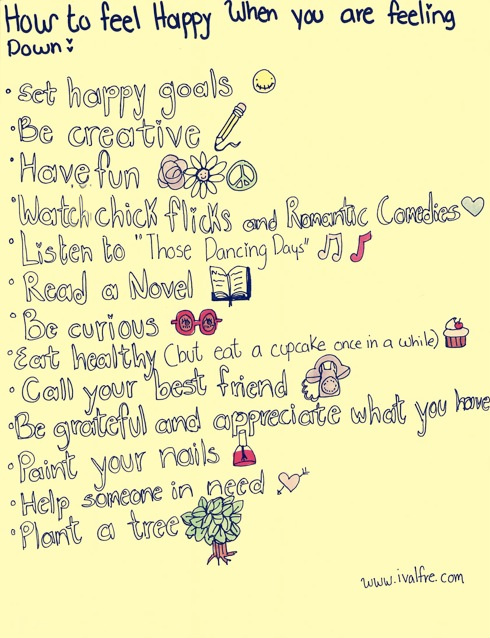 How to feel Happy When you are feeling
Down:
• set happy goals
• Be creative
• Have fun
• Watch chick flicks and Romantic Comedies
• Listen to "Those Dancing Days"
• Read a Novel
• Be curious
• Eat healthy (but eat a cupcake once in a while)
• Call your best friend
• Be grateful and appreciate what you have
• Paint your nails
• Help someone in need
• Plant a tree
www.ivalfre.com